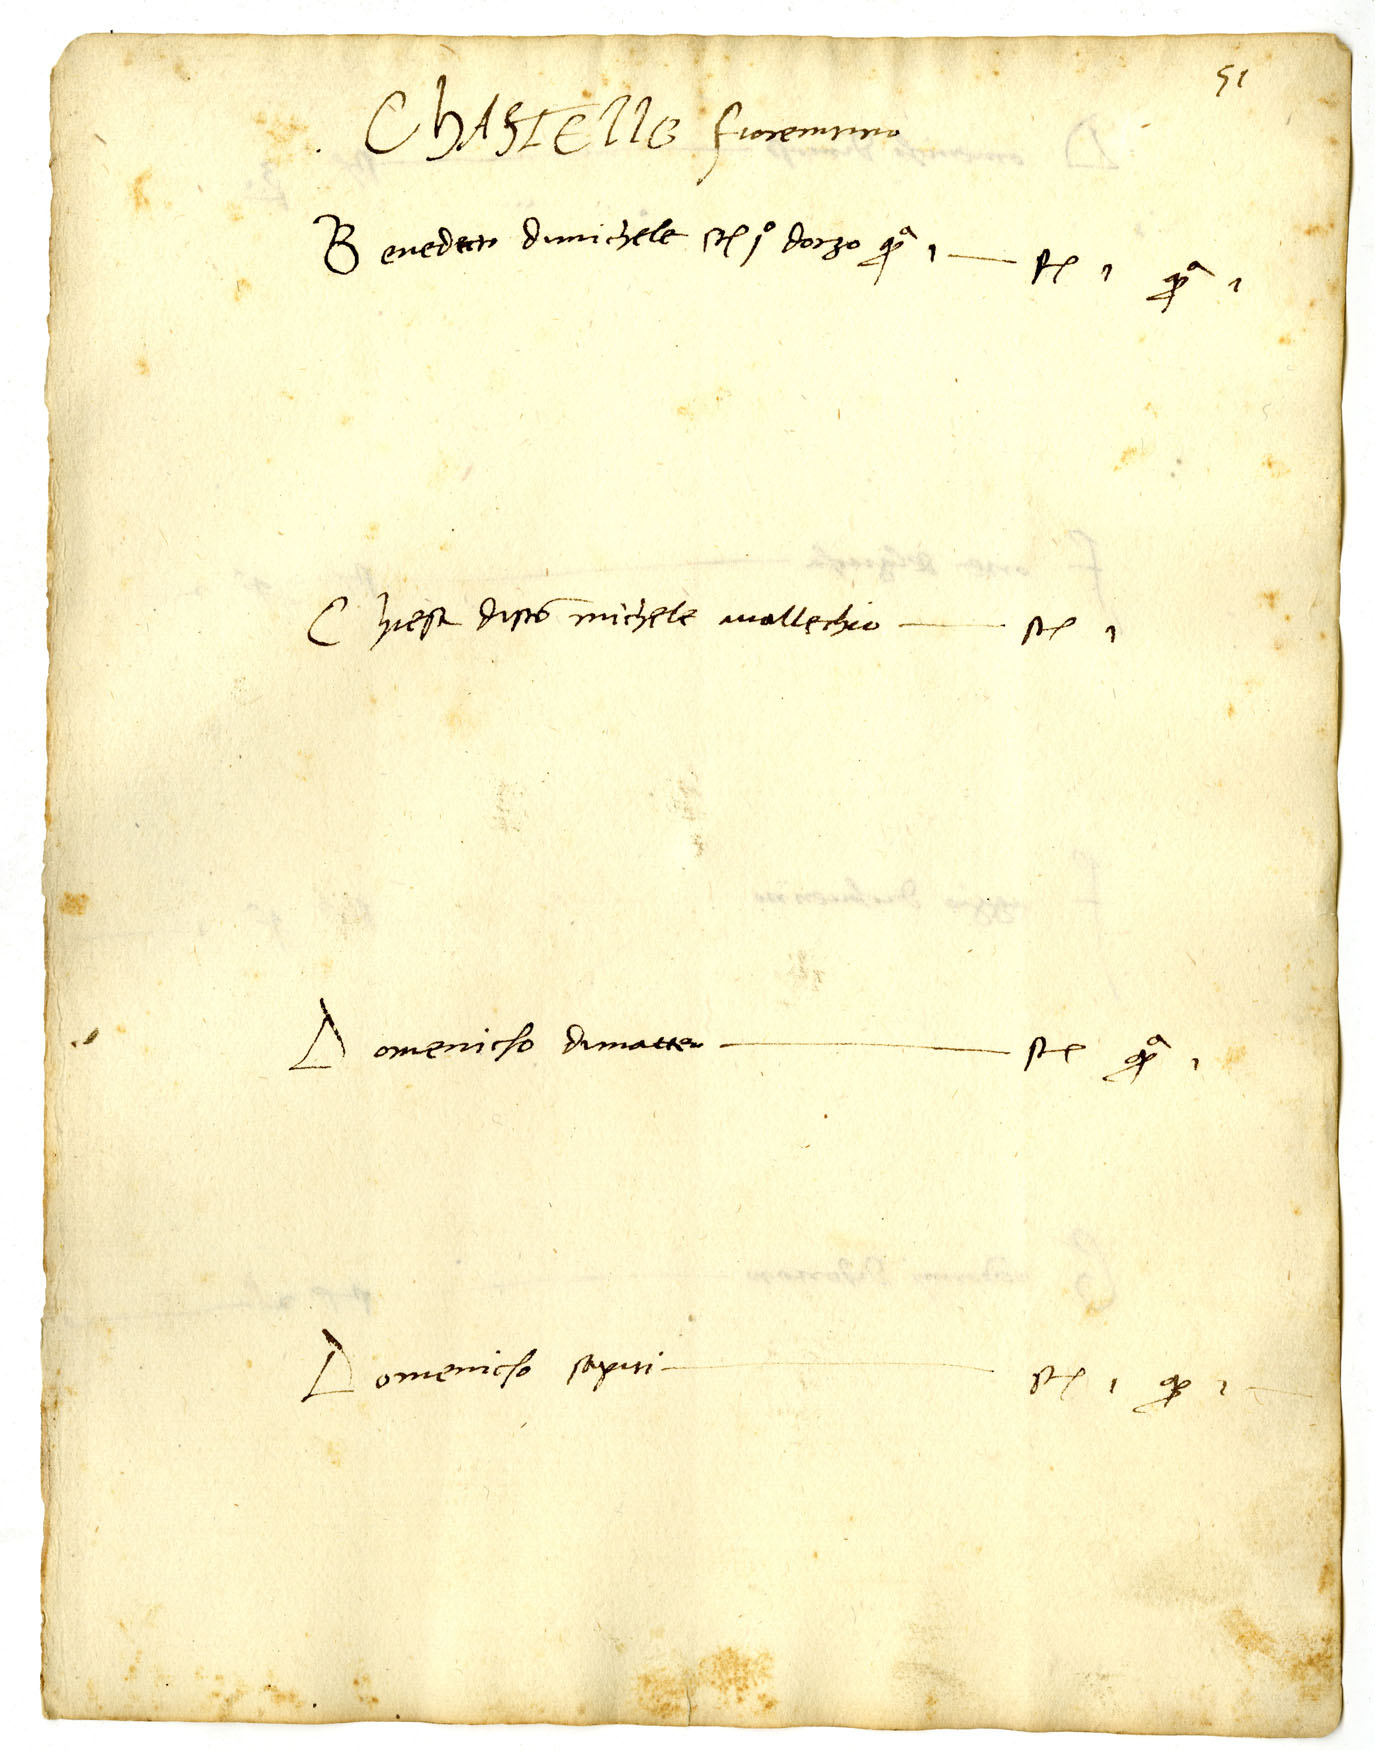 51
ChASTELLO fiorentino
Benedetto dimichele st 1º dorzo qrª 1 — st 1 qrª 1
Chiesa disto michele avallechio — st 1
Domenicho dimatteo — st qrª 1
Domenicho saputi — st 1 qr 1 —